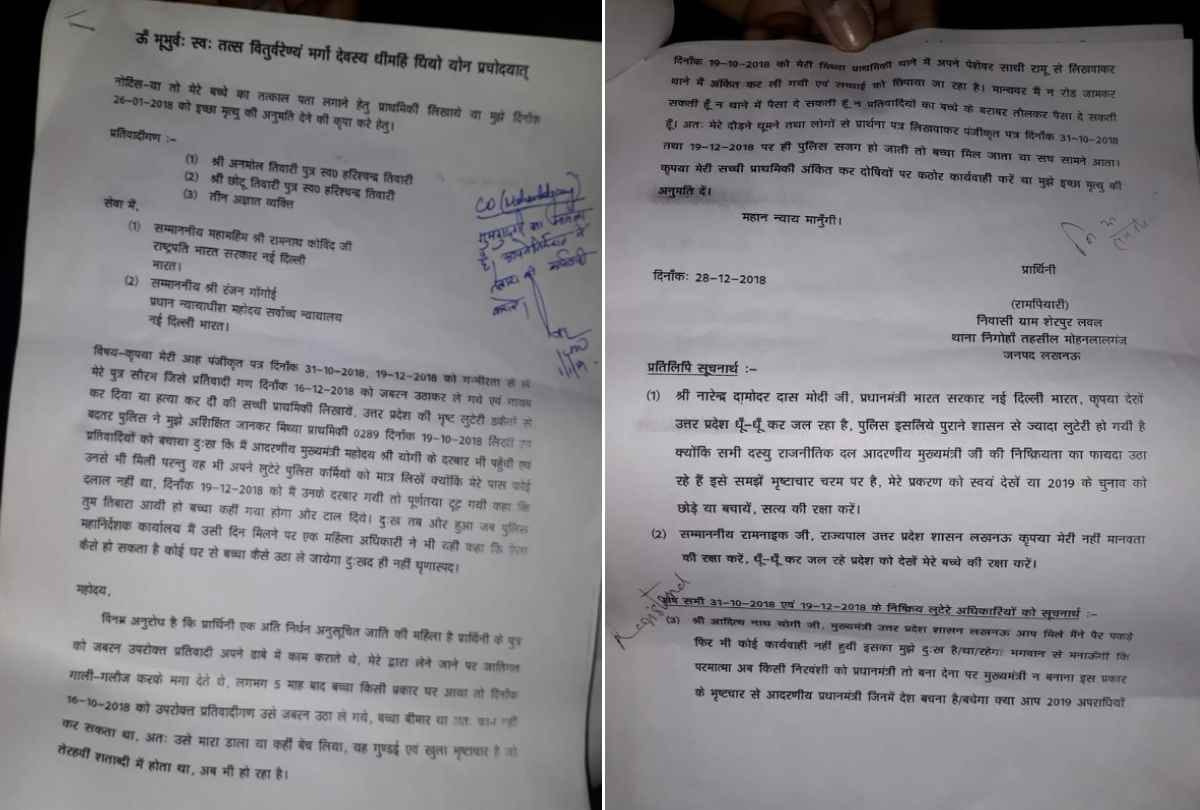 ऊँ भूभुर्वः स्वः तत्स वितुर्वरेण्यं भर्गो देवस्य धीमहि धियो योन प्रचोदयात्
नोटिस-या तो मेरे बच्चे का तत्काल पता लगाने हेतु प्राथमिकी लिखाये या मुझे दिनाँक
26-01-2018 को इच्छा मृत्यु की अनुमति देने की कृपा करे हेतु।
प्रतिवादीगण :-
(1) श्री अनमोल तिवारी पुत्र स्व0 हरिश्चन्द्र तिवारी
(2) श्री छोटू तिवारी पुत्र स्व0 हरिश्चन्द्र तिवारी
(3) तीन अज्ञात व्यक्ति
सेवा में,
(1) सम्माननीय महामहिम श्री रामनाथ कोविंद जी
राष्ट्रपति भारत सरकार नई दिल्ली
भारत।
(2) सम्माननीय श्री रंजन गोंगोई
प्रधान न्यायाधीश महोदय सर्वोच्च न्यायालय
नई दिल्ली भारत।
CO (Mohanlalganj)
गुमशुदगी का मामला
है।
विषय-कृपया मेरी आह पंजीकृत पत्र दिनाँक 31-10-2018, 19-12-2018 को गम्भीरता से लें
मेरे पुत्र सौरभ जिसे प्रतिवादी गण दिनाँक 16-12-2018 को जबरन उठाकर ले गये एवं गायब
कर दिया या हत्या कर दी की सच्ची प्राथमिकी लिखाये, उत्तर प्रदेश की भृष्ट लुटेरी डकैतों से
बदतर पुलिस ने मुझे अशिक्षित जानकर मिथ्या प्राथमिकी 0289 दिनाँक 19-10-2018 लिखी एवं
प्रतिवादियों को बचाया दुःख कि मैं आदरणीय मुख्यमंत्री महोदय श्री योगी के दरबार भी पहुँची एवं
उनसे भी मिली परन्तु वह भी अपने लुटेरे पुलिस कर्मियों को मात्र लिखें क्योंकि मेरे पास कोई
दलाल नहीं था, दिनाँक 19-12-2018 को मैं उनके दरबार गयी तो पूर्णतया टूट गयी कहा कि
तुम तिबारा आयी हो बच्चा कहीं गया होगा और टाल दिये। दुःख तब और हुआ जब पुलिस
महानिर्देशक कार्यालय में उसी दिन मिलने पर एक महिला अधिकारी ने भी यही कहा कि ऐसा
कैसे हो सकता है कोई घर से बच्चा कैसे उठा ले जायेगा दुःखद ही नहीं घृणास्पद।
महोदय,
विनम्र अनुरोध है कि प्रार्थिनी एक अति निर्धन अनुसूचित जाति की महिला है प्रार्थिनी के पुत्र
को जबरन उपरोक्त प्रतिवादी अपने ढाबे में काम कराते थे, मेरे द्वारा लेने जाने पर जातिगत
गाली-गलौज करके भगा देते थे, लगभग 5 माह बाद बच्चा किसी प्रकार घर आया तो दिनाँक
16-10-2018 को उपरोक्त प्रतिवादीगण उसे जबरन उठा ले गये, बच्चा बीमार था अतः काम नहीं
कर सकता था, अतः उसे मारा डाला या कहीं बेच लिया, यह गुण्डई एवं खुला भृष्टाचार है जो
तेरहवीं शताब्दी में होता था, अब भी हो रहा है।
दिनाँक 19-10-2018 को मेरी मिथ्या प्राथमिकी थाने में अपने पेशेवर साथी रामू से लिखवाकर
थाने में अंकित कर ली गयी एवं सच्चाई को छिपाया जा रहा है। मान्यवर मै न रोड जामकर
सकती हूँ न थाने में पैसा दे सकती हूँ न प्रतिवादियों का बच्चे के बराबर तौलकर पैसा दे सकती
हूँ। अतः मेरे दौड़ने घूमने तथा लोगों से प्रार्थना पत्र लिखवाकर पंजीकृत पत्र दिनाँक 31-10-2018
तथा 19-12-2018 पर ही पुलिस सजग हो जाती तो बच्चा मिल जाता या सच सामने आता।
कृपया मेरी सच्ची प्राथमिकी अंकित कर दोषियों पर कठोर कार्यवाही करें या मुझे इच्छा मृत्यु की
अनुमति दें।
महान न्याय मानूँगी।
प्रार्थिनी
दिनाँकः 28-12-2018
(रामपियारी)
निवासी ग्राम शेरपुर लवल
थाना निगोहाँ तहसील मोहनलालगंज
जनपद लखनऊ
प्रतिलिपि सूचनार्थ :-
(1) श्री नारेन्द्र दामोदर दास मोदी जी, प्रधानमंत्री भारत सरकार नई दिल्ली भारत, कृपया देखें
उत्तर प्रदेश धूँ-धूँ कर जल रहा है, पुलिस इसलिये पुराने शासन से ज्यादा लुटेरी हो गयी है
क्योंकि सभी दस्यु राजनीतिक दल आदरणीय मुख्यमंत्री जी की निष्क्रियता का फायदा उठा
रहे हैं इसे समझें भृष्टाचार चरम पर है, मेरे प्रकरण को स्वयं देखें या 2019 के चुनाव को
छोड़े या बचायें, सत्य की रक्षा करें।
(2) सम्माननीय रामनाइक जी, राज्यपाल उत्तर प्रदेश शासन लखनऊ कृपया मेरी नहीं मानवता
की रक्षा करें, धूँ-धूँ कर जल रहे प्रदेश को देखें मेरे बच्चे की रक्षा करें।
Registered
शेष सभी 31-10-2018 एवं 19-12-2018 के निष्क्रिय लुटेरे अधिकारियों को सूचनार्थ :-
(3) श्री आदित्य नाथ योगी जी, मुख्यमंत्री उत्तर प्रदेश शासन लखनऊ आप मिले मैने पैर पकड़े
फिर भी कोई कार्यवाही नहीं हुयी इसका मुझे दुःख है/था/रहेगा भगवान से मनाऊँगी कि
परमात्मा अब किसी निरवंशी को प्रधानमंत्री तो बना देना पर मुख्यमंत्री न बनाना इस प्रकार
के भृष्टचार से आदरणीय प्रधानमंत्री जिनमें देश बचना है/बचेगा क्या आप 2019 अपराधियों